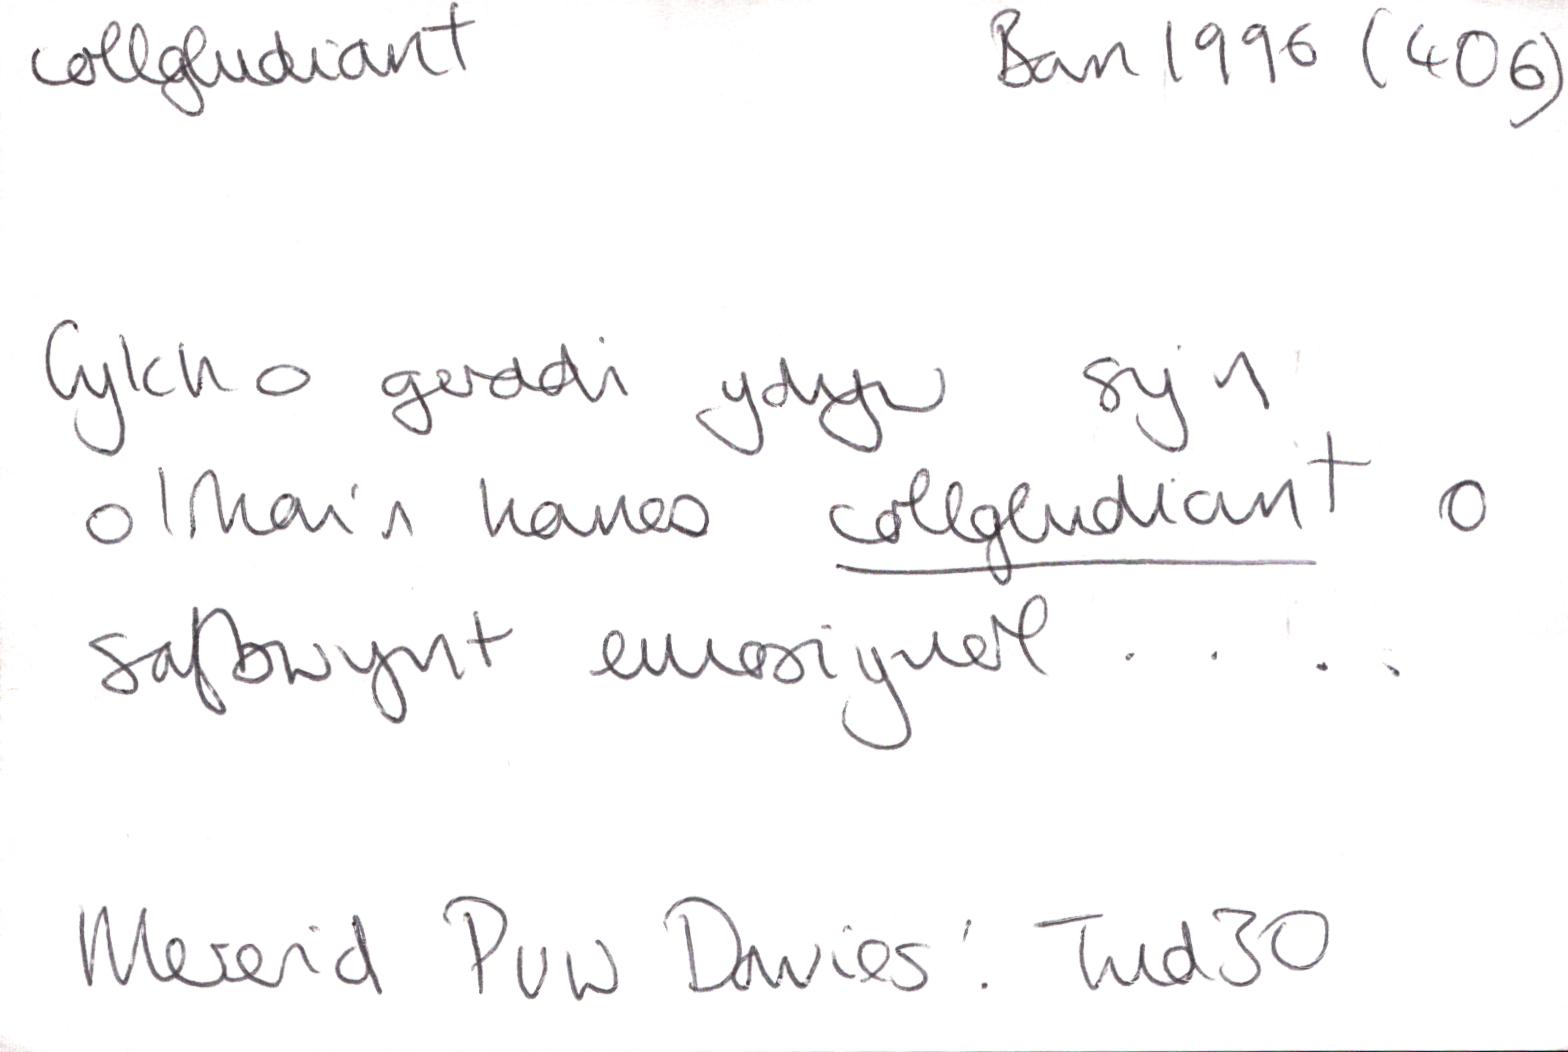 collgludiant Barn 1996 (406)
Cylch o gerddi ydyw sy'n
olrhain hanes collgludiant o
safbwynt emosiynol . . . .
Mererid Puw Davies'. Tud 30